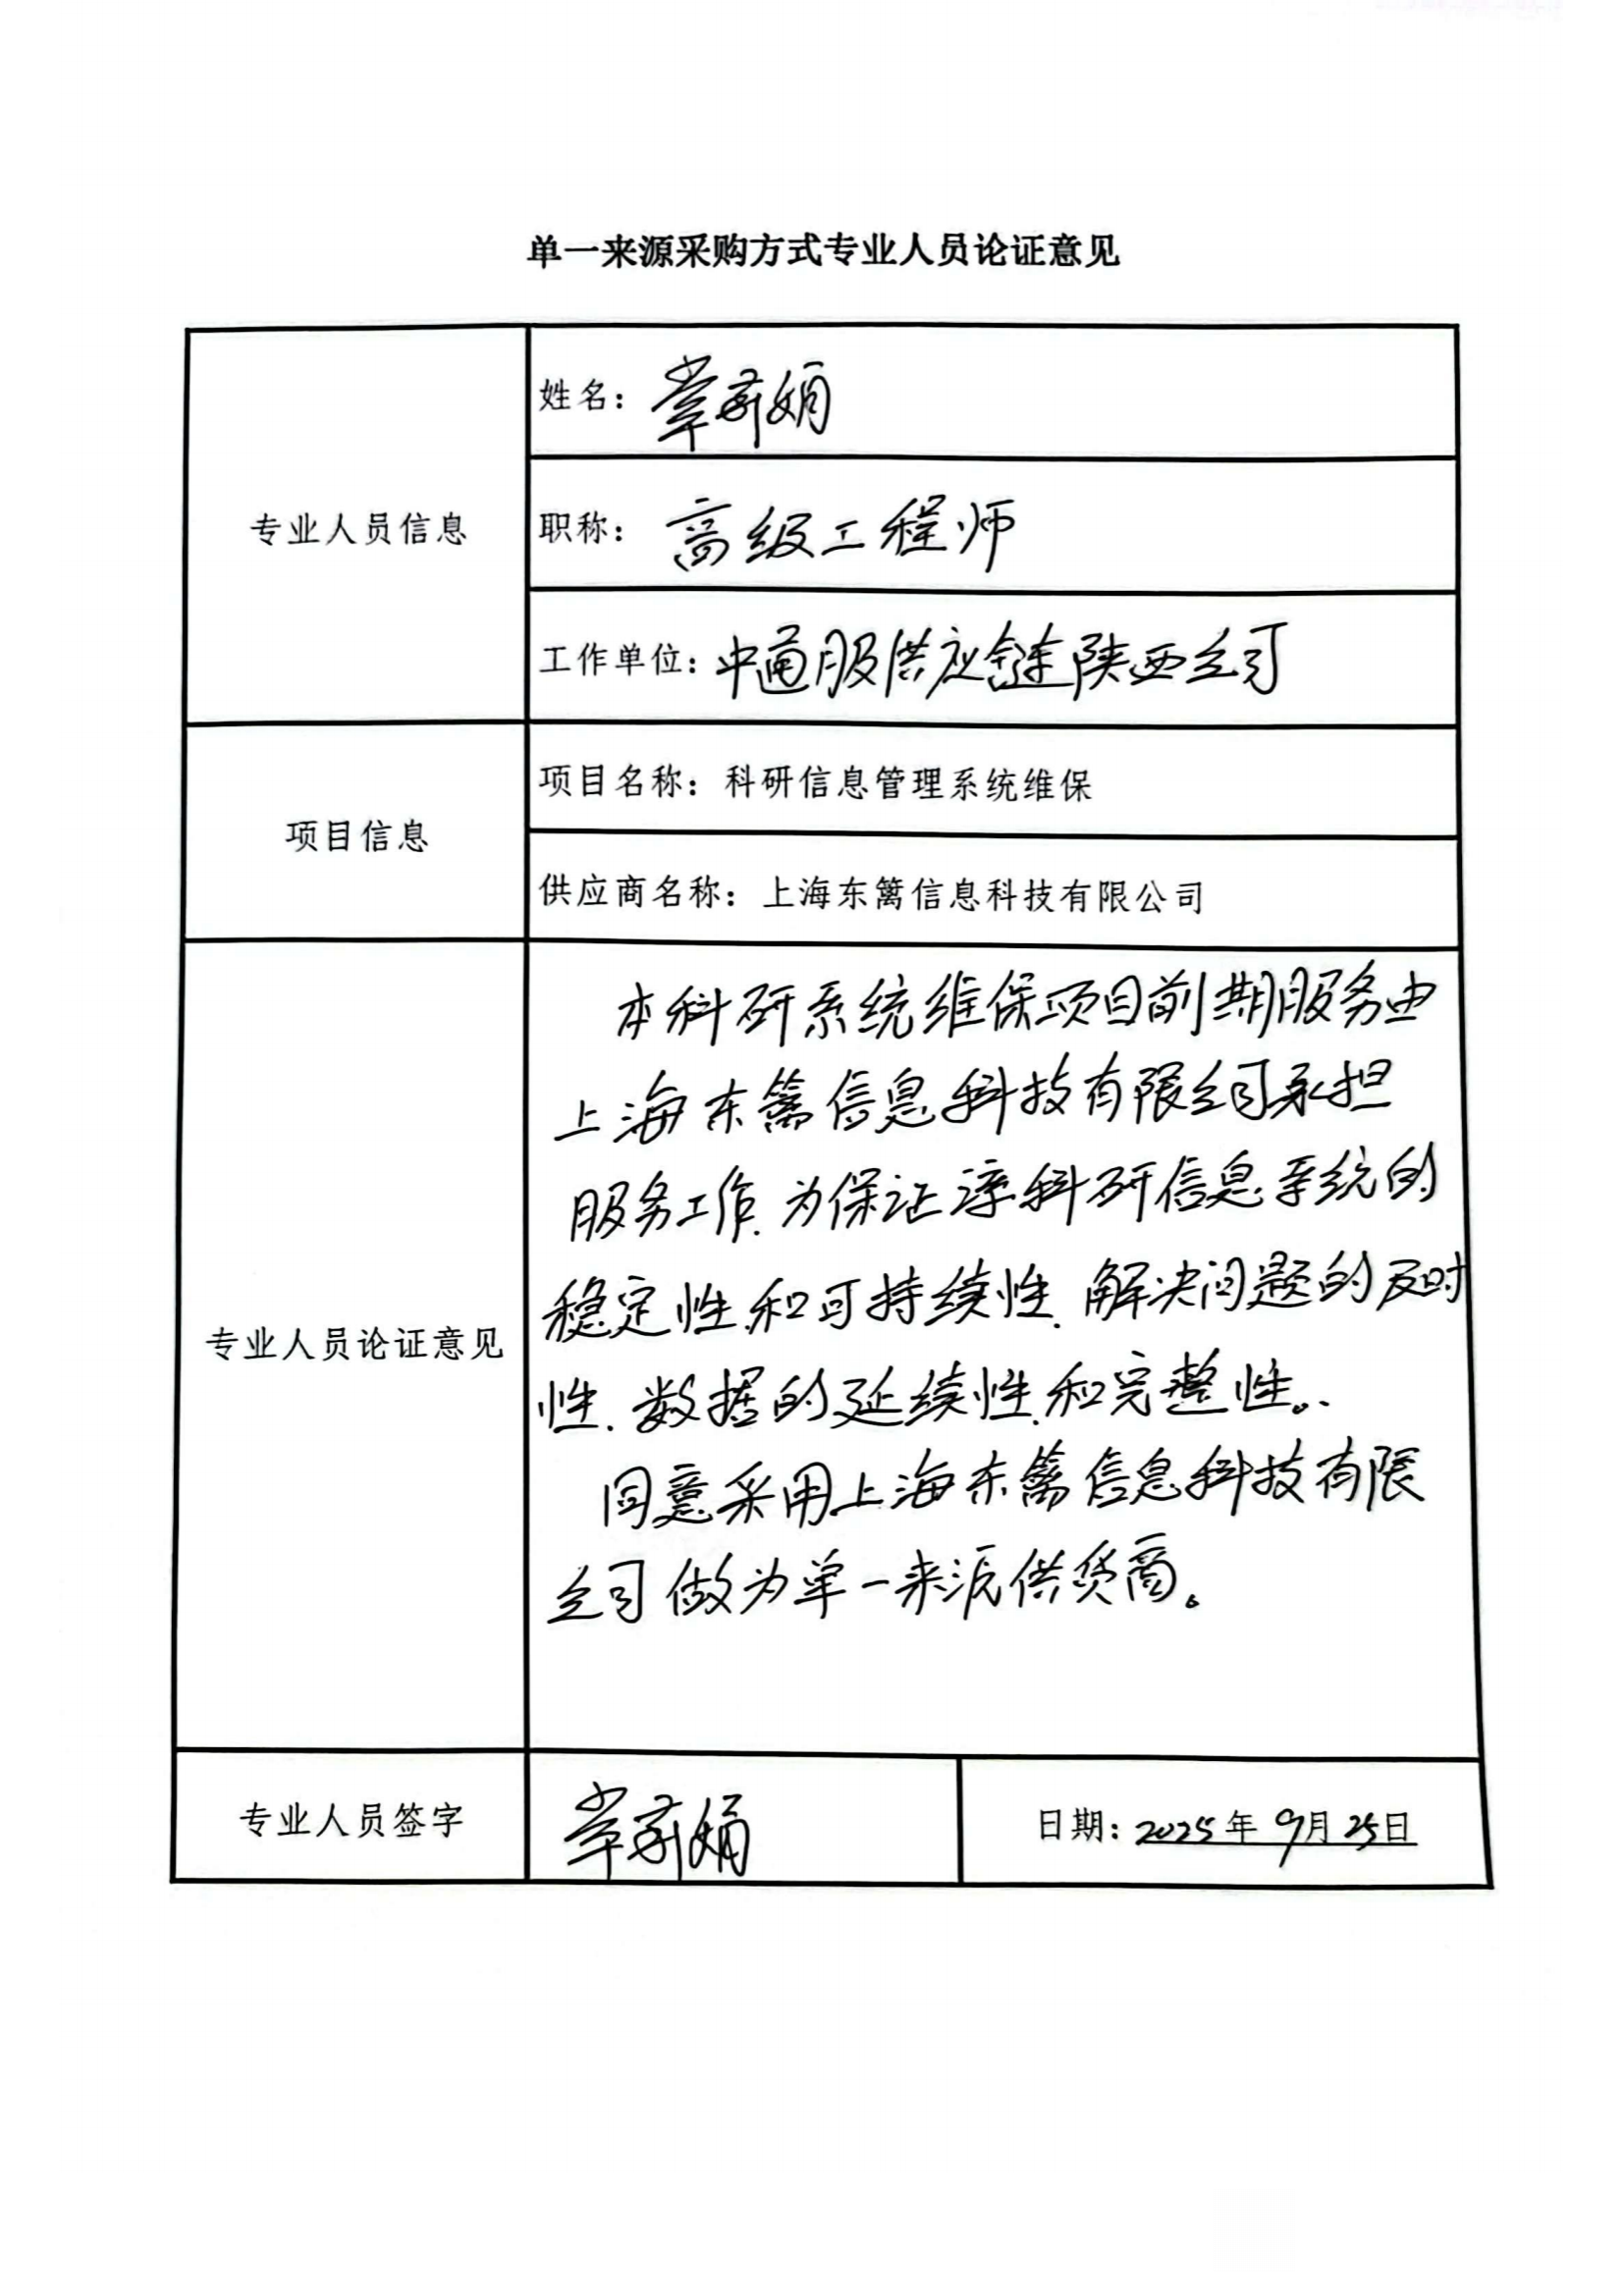 单一来源采购方式专业人员论证意见
专业人员信息
姓名：
职称：高级工程师
工作单位：中通服供应链陕西公司
项目信息
项目名称：科研信息管理系统维保
供应商名称：上海东篱信息科技有限公司
专业人员论证意见
本科研系统维保项目前期服务由
上海东篱信息科技有限公司承担
服务工作.为保证该科研信息系统的
稳定性和可持续性.解决问题的及时
性.数据的延续性和完整性。
同意采用上海东篱信息科技有限
公司做为单一来源供货商。
专业人员签字
日期：2025年9月25日